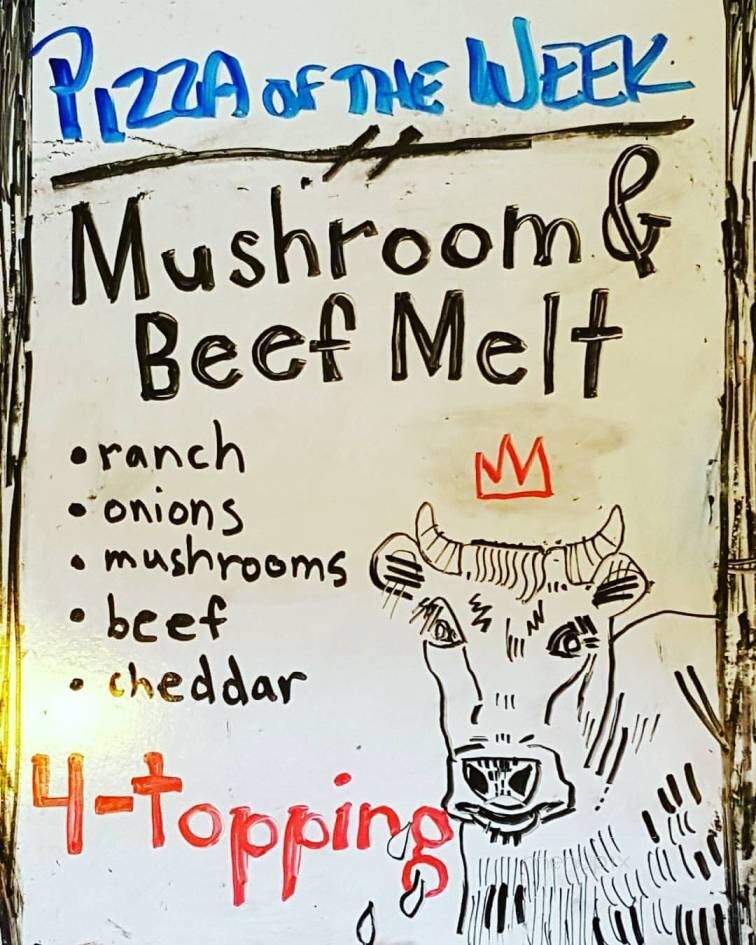 Pizza of the Week
Mushroom &
Beef Melt
• ranch
• onions
• mushrooms
• beef
• cheddar
4-topping